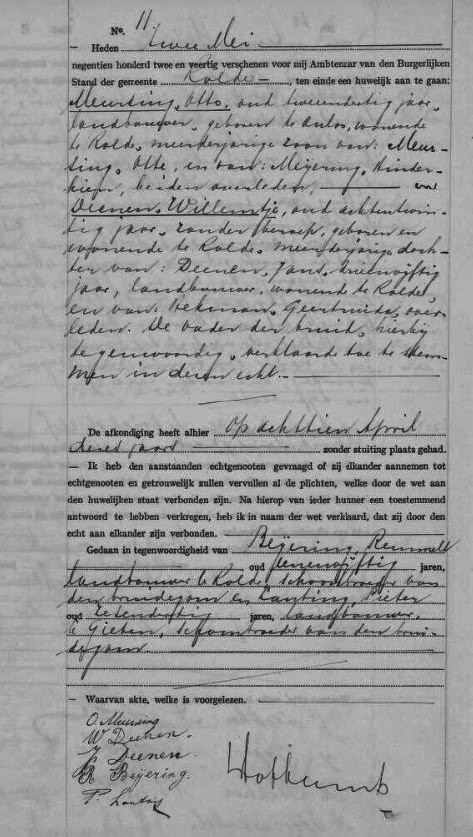 No. 11
— Heden twee Mei
negentien honderd twee en veertig verschenen voor mij Ambtenaar van den Burgerlijken
Stand der gemeente Rolde, ten einde een huwelijk aan te gaan:
Meursing, Otto, oud tweeendertig jaar,
landbouwer, geboren te Anloo, wonende
te Rolde, meerderjarige zoon van: Meur-
sing, Otte, en van: Meijering, Hinder-
kien, beiden overleden, — en
Deenen, Willemtje, oud achtentwin-
tig jaar, zonder beroep, geboren en
wonende te Rolde, meerderjarige doch-
ter van: Deenen, Jans, drieenvijftig
jaar, landbouwer, wonend te Rolde,
en van: Hekman, Geertruida, over-
leden. De vader der bruid, hierbij
tegenwoordig, verklaarde toe te stem-
men in deren echt.—
De afkondiging heeft alhier op achttien April
dezes jaars zonder stuiting plaats gehad.
— Ik heb den aanstaanden echtgenooten gevraagd of zij elkander aannemen tot
echtgenooten en getrouwelijk zullen vervullen al de plichten, welke door de wet aan
den huwelijken staat verbonden zijn. Na hierop van ieder hunner een toestemmend
antwoord te hebben verkregen, heb ik in naam der wet verklaard, dat zij door den
echt aan elkander zijn verbonden.
Gedaan in tegenwoordigheid van Beijering,
oud eenenvijftig jaren,
landbouwer te Rolde, schoonbroeder van
den bruidegom en Lanting, Pieter
oud zevendertig jaren, landbouwer
te Gieten, schoonbroeder van den brui-
degom.
— Waarvan akte, welke is voorgelezen.
O. Meursing
W Deenen.
J Deenen.
R Beijering.
P. Lanting